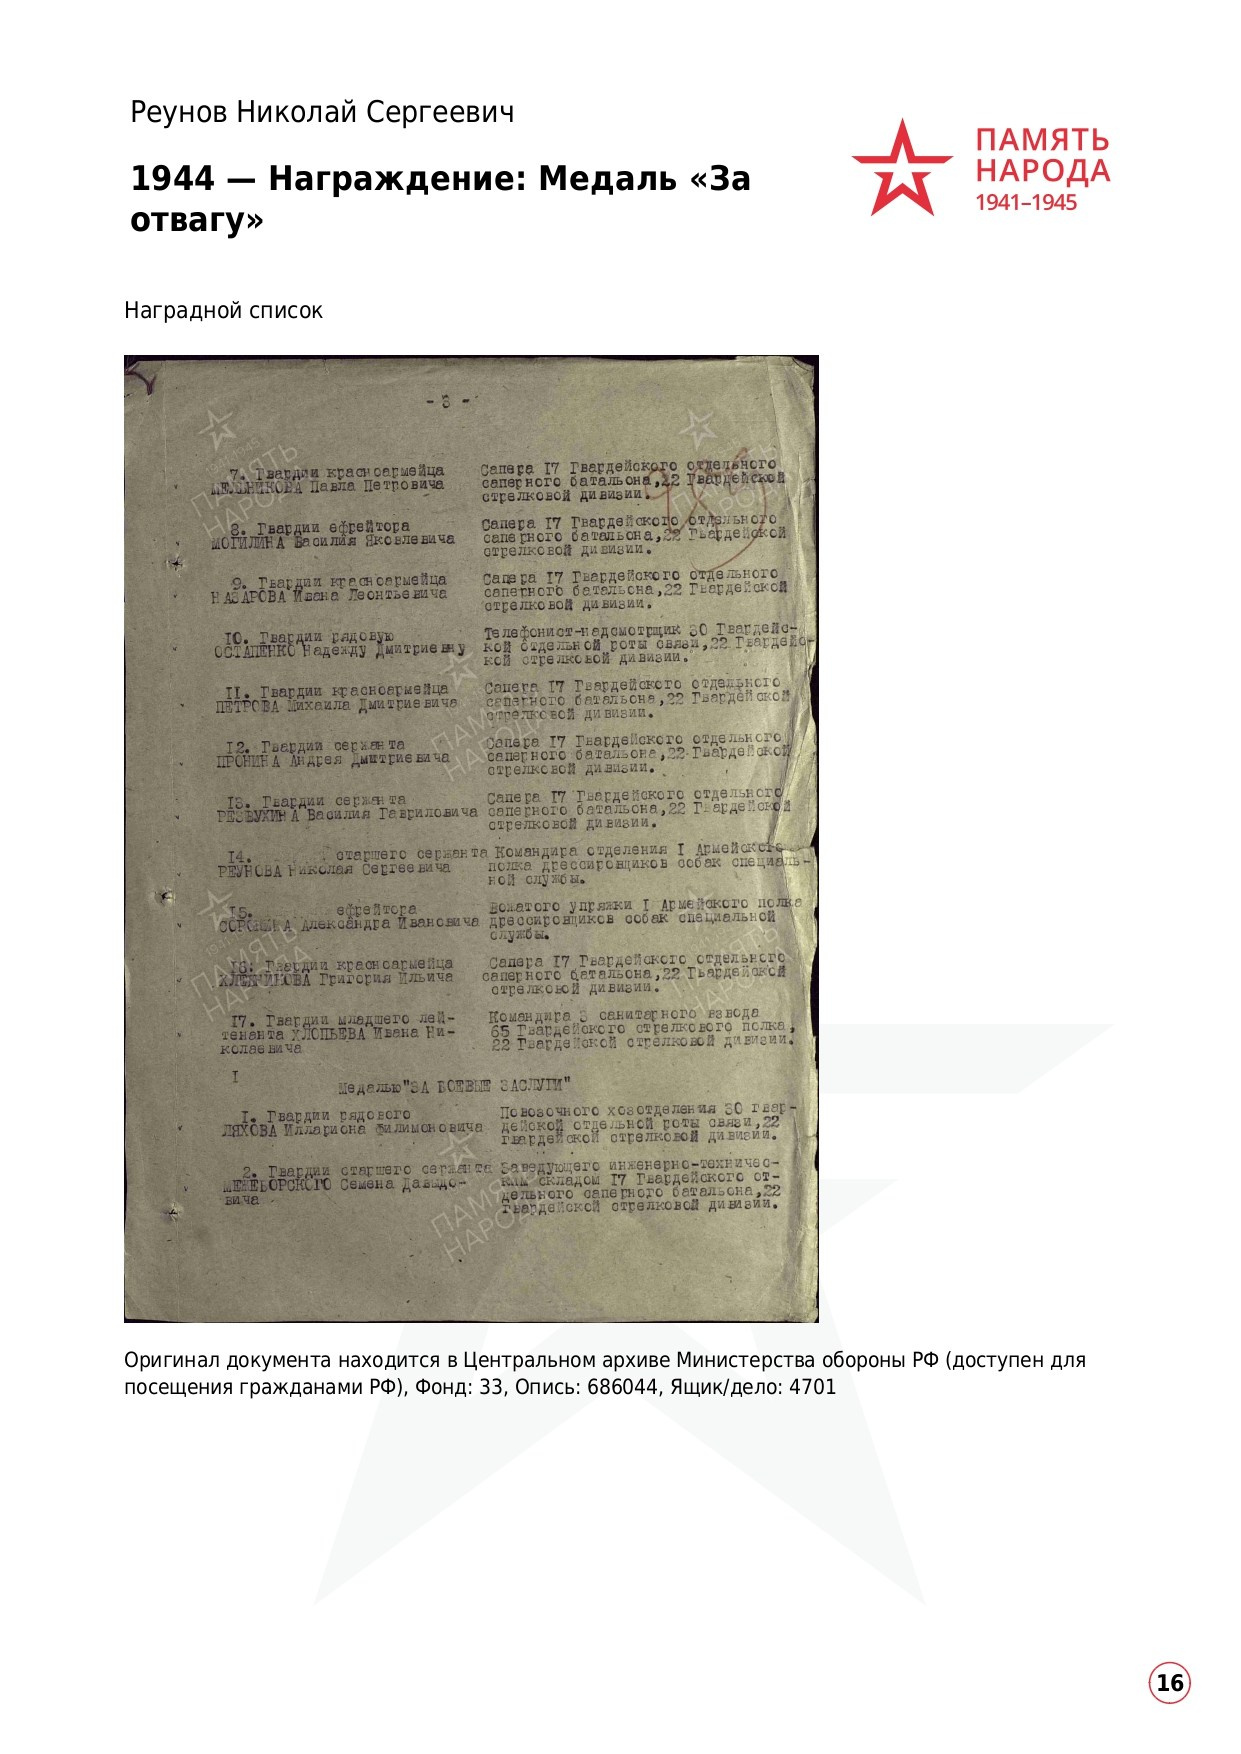 Реунов Николай Сергеевич
1944 — Награждение: Медаль «За
отвагу»
ПАМЯТЬ
НАРОДА
1941–1945
Наградной список
- 3 -
7. Гвардии красноармейца Сапера I7 Гвардейского отдельного
МЕЛЬНИКОВА Павла Петровича саперного батальона,22 Гвардейской
стрелковой дивизии.
8. Гвардии ефрейтора Сапера I7 Гвардейского отдельного
МОГИЛИНА Василия Яковлевича саперного батальона,22 Гвардейской
стрелковой дивизии.
9. Гвардии красноармейца Сапера I7 Гвардейского отдельного
НАЗАРОВА Ивана Леонтьевича саперного батальона,22 Гвардейской
стрелковой дивизии.
I0. Гвардии рядовую Телефонист-надсмотрщик 30 Гвардейс-
ОСТАПЕНКО Надежду Дмитриевну кой отдельной роты связи,22 Гвардейс-
кой стрелковой дивизии.
II. Гвардии красноармейца Сапера I7 Гвардейского отдельного
ПЕТРОВА Михаила Дмитриевича саперного батальона,22 Гвардейской
стрелковой дивизии.
I2. Гвардии сержанта Сапера I7 Гвардейского отдельного
ПРОНИНА Андрея Дмитриевича саперного батальона,22 Гвардейской
стрелковой дивизии.
I3. Гвардии сержанта Сапера I7 Гвардейского отдельного
РЕЗВУХИНА Василия Гавриловича саперного батальона,22 Гвардейской
стрелковой дивизии.
I4. старшего сержанта Командира отделения I Армейского
РЕУНОВА Николая Сергеевича полка дрессировщиков собак специаль-
ной службы.
I5. ефрейтора Вожатого упряжки I Армейского полка
Александра Ивановича дрессировщиков собак специальной
службы.
I6. Гвардии красноармейца Сапера I7 Гвардейского отдельного
Григория Ильича саперного батальона,22 Гвардейской
стрелковой дивизии.
I7. Гвардии младшего лей- Командира 3 санитарного взвода
тенанта ХЛОПЬЕВА Ивана Ни- 65 Гвардейского стрелкового полка,
колаевича 22 Гвардейской стрелковой дивизии.
I
Медалью"ЗА БОЕВЫЕ ЗАСЛУГИ"
I. Гвардии рядового Повозочного хозотделения 30 гвар-
ЛЯХОВА Иллариона Филимоновича дейской отдельной роты связи,22
гвардейской стрелковой дивизии.
2. Гвардии старшего сержанта Заведующего инженерно-техничес-
МЕЖЕБОРСКОГО Семена Давыдо- ким складом I7 Гвардейского от-
вича дельного саперного батальона,22
Гвардейской стрелковой дивизии.
Оригинал документа находится в Центральном архиве Министерства обороны РФ (доступен для
посещения гражданами РФ), Фонд: 33, Опись: 686044, Ящик/дело: 4701
16